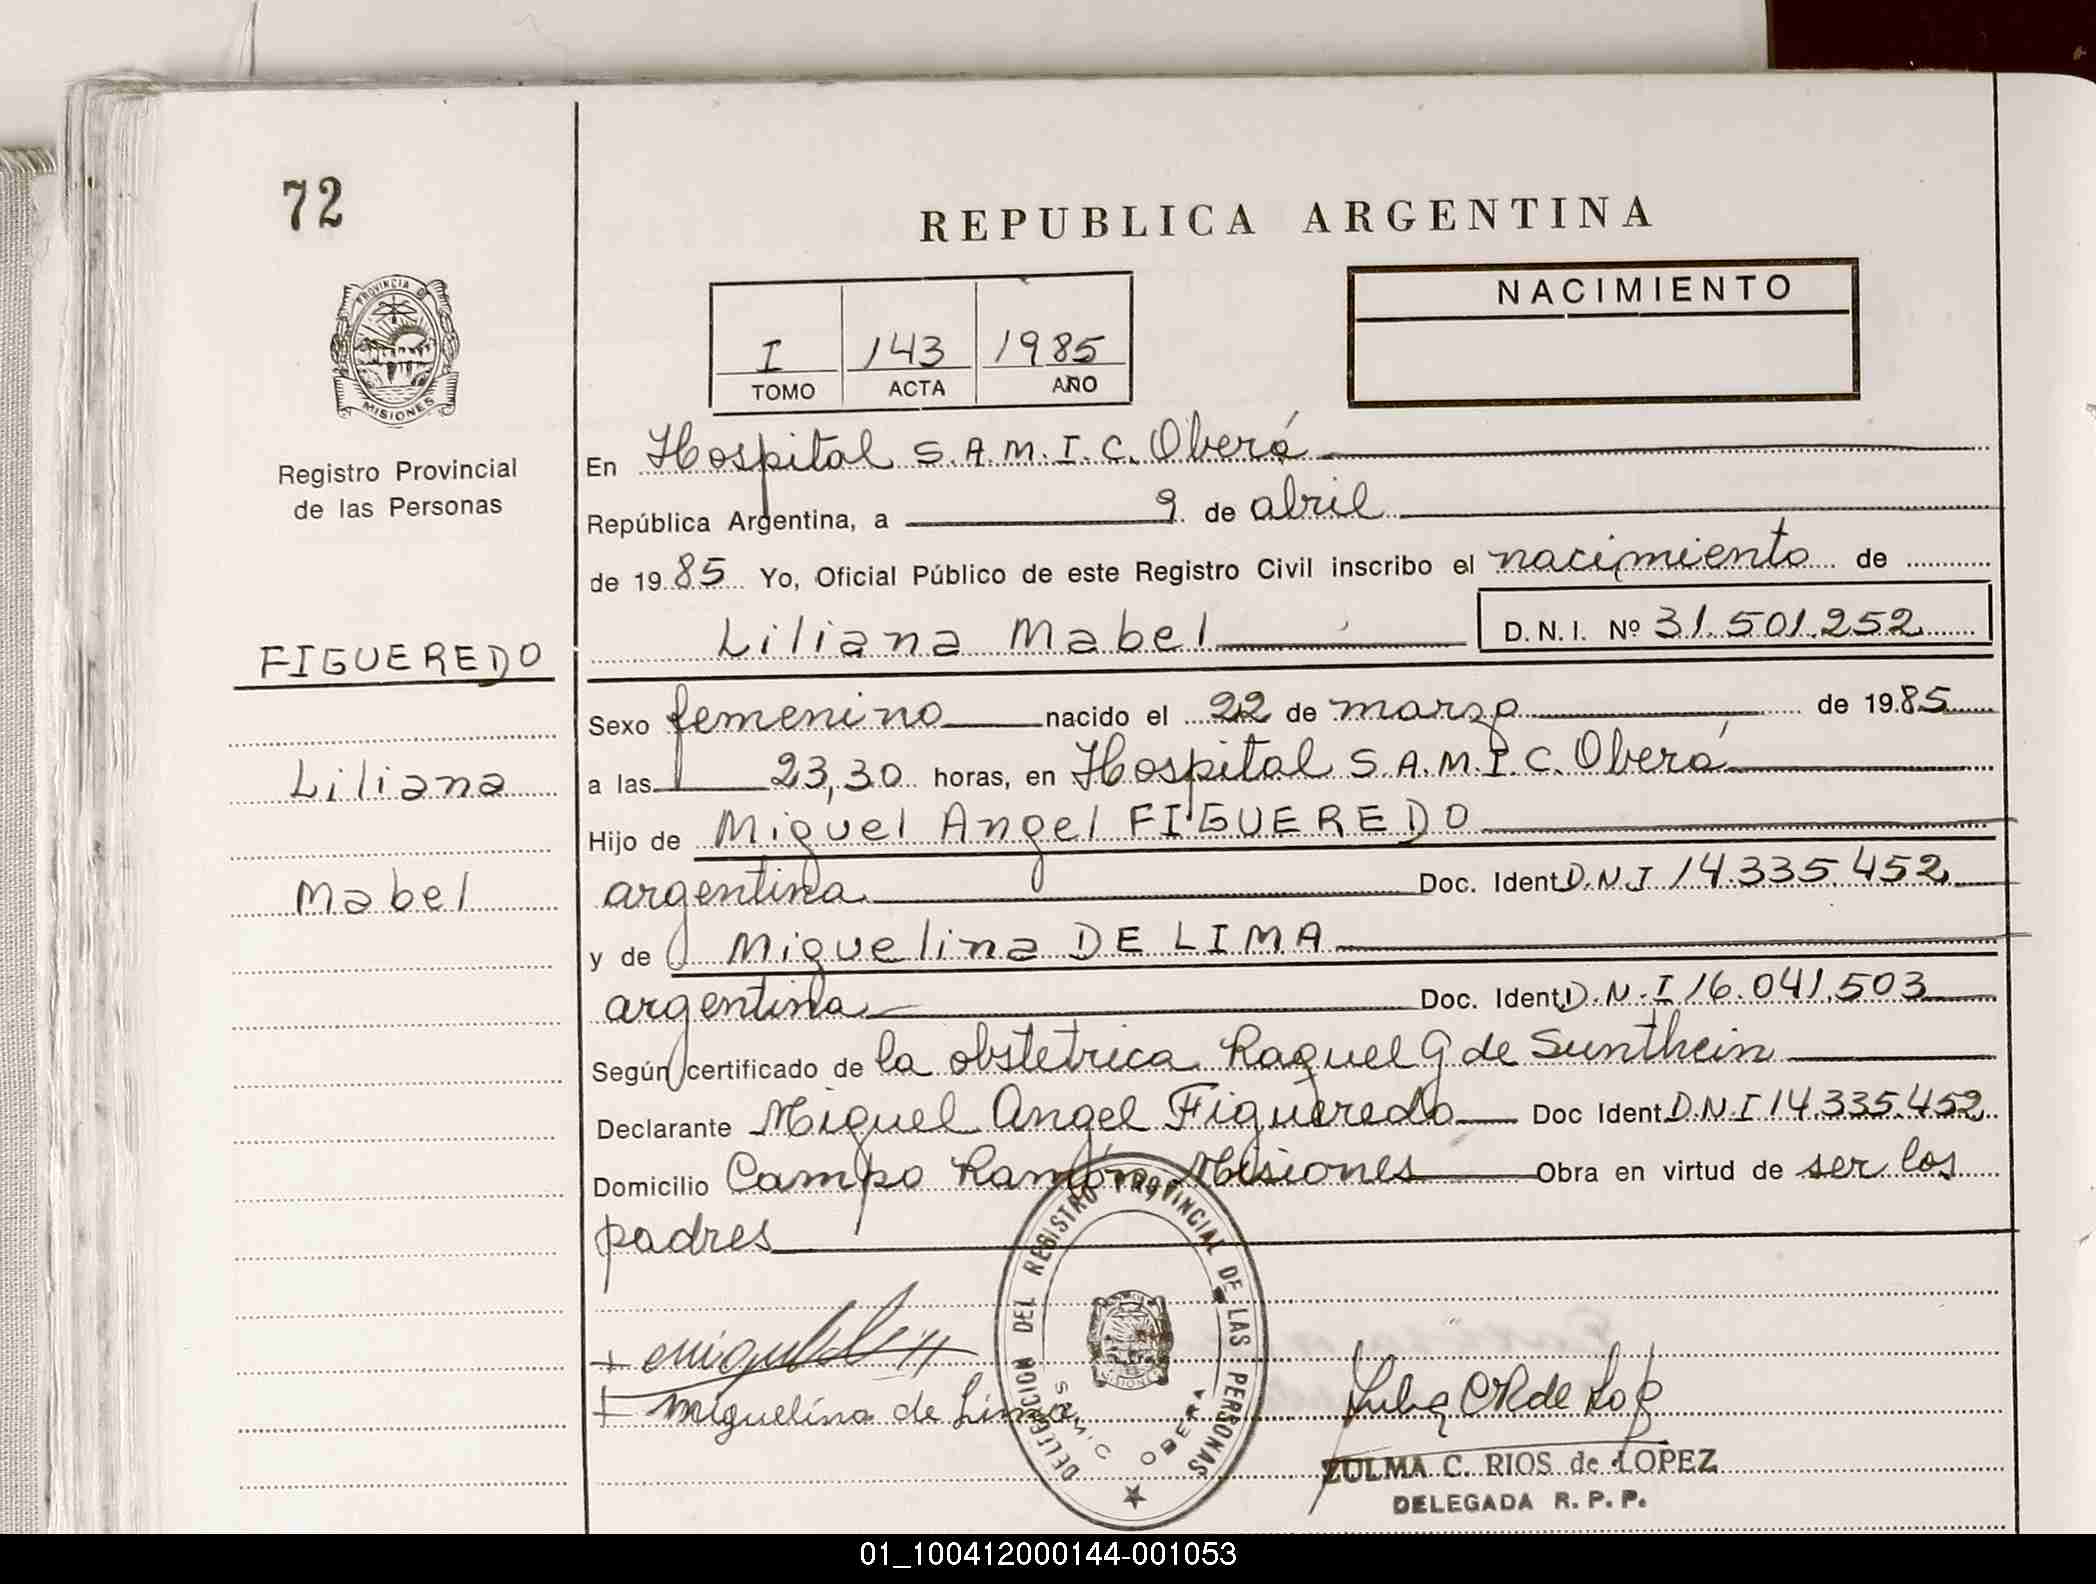 72
REPUBLICA ARGENTINA
PROVINCIA DE
MISIONES
NACIMIENTO
I 143 1985
TOMO ACTA AÑO
Registro Provincial
de las Personas
En Hospital S.A.M.I.C. Oberá
República Argentina, a 9 de abril
de 1985 Yo, Oficial Público de este Registro Civil inscribo el nacimiento de
Liliana Mabel D.N.I. Nº 31.501.252
FIGUEREDO
Liliana
Mabel
Sexo femenino nacido el 22 de marzo de 1985
a las 23,30 horas, en Hospital S.A.M.I.C. Oberá
Hijo de Miguel Angel FIGUEREDO
argentina Doc. Ident D.N.I 14.335.452
y de Miguelina DE LIMA
argentina Doc. Ident D.N.I 16.041.503
Según certificado de la obstetrica Raquel G de Sunthein
Declarante Miguel Angel Figueredo Doc Ident D.N.I 14.335.452
Domicilio Campo Ramón Misiones Obra en virtud de ser los
padres
DELEGACION DEL REGISTRO PROVINCIAL DE LAS PERSONAS
MISIONES
SAMIC OBERA
miguelina de Lima
ZULMA C. RIOS de LOPEZ
DELEGADA R.P.P.
01_100412000144-001053